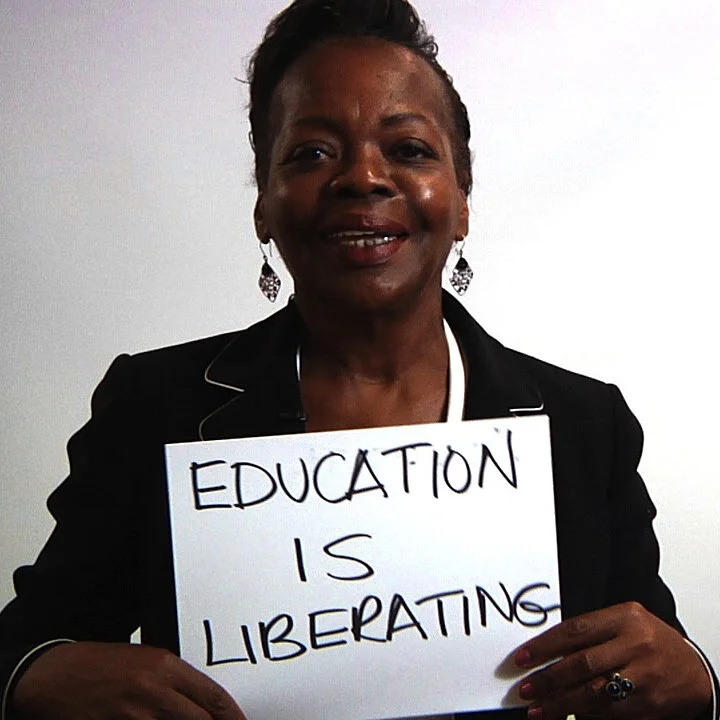 EDUCATION
IS
LIBERATING